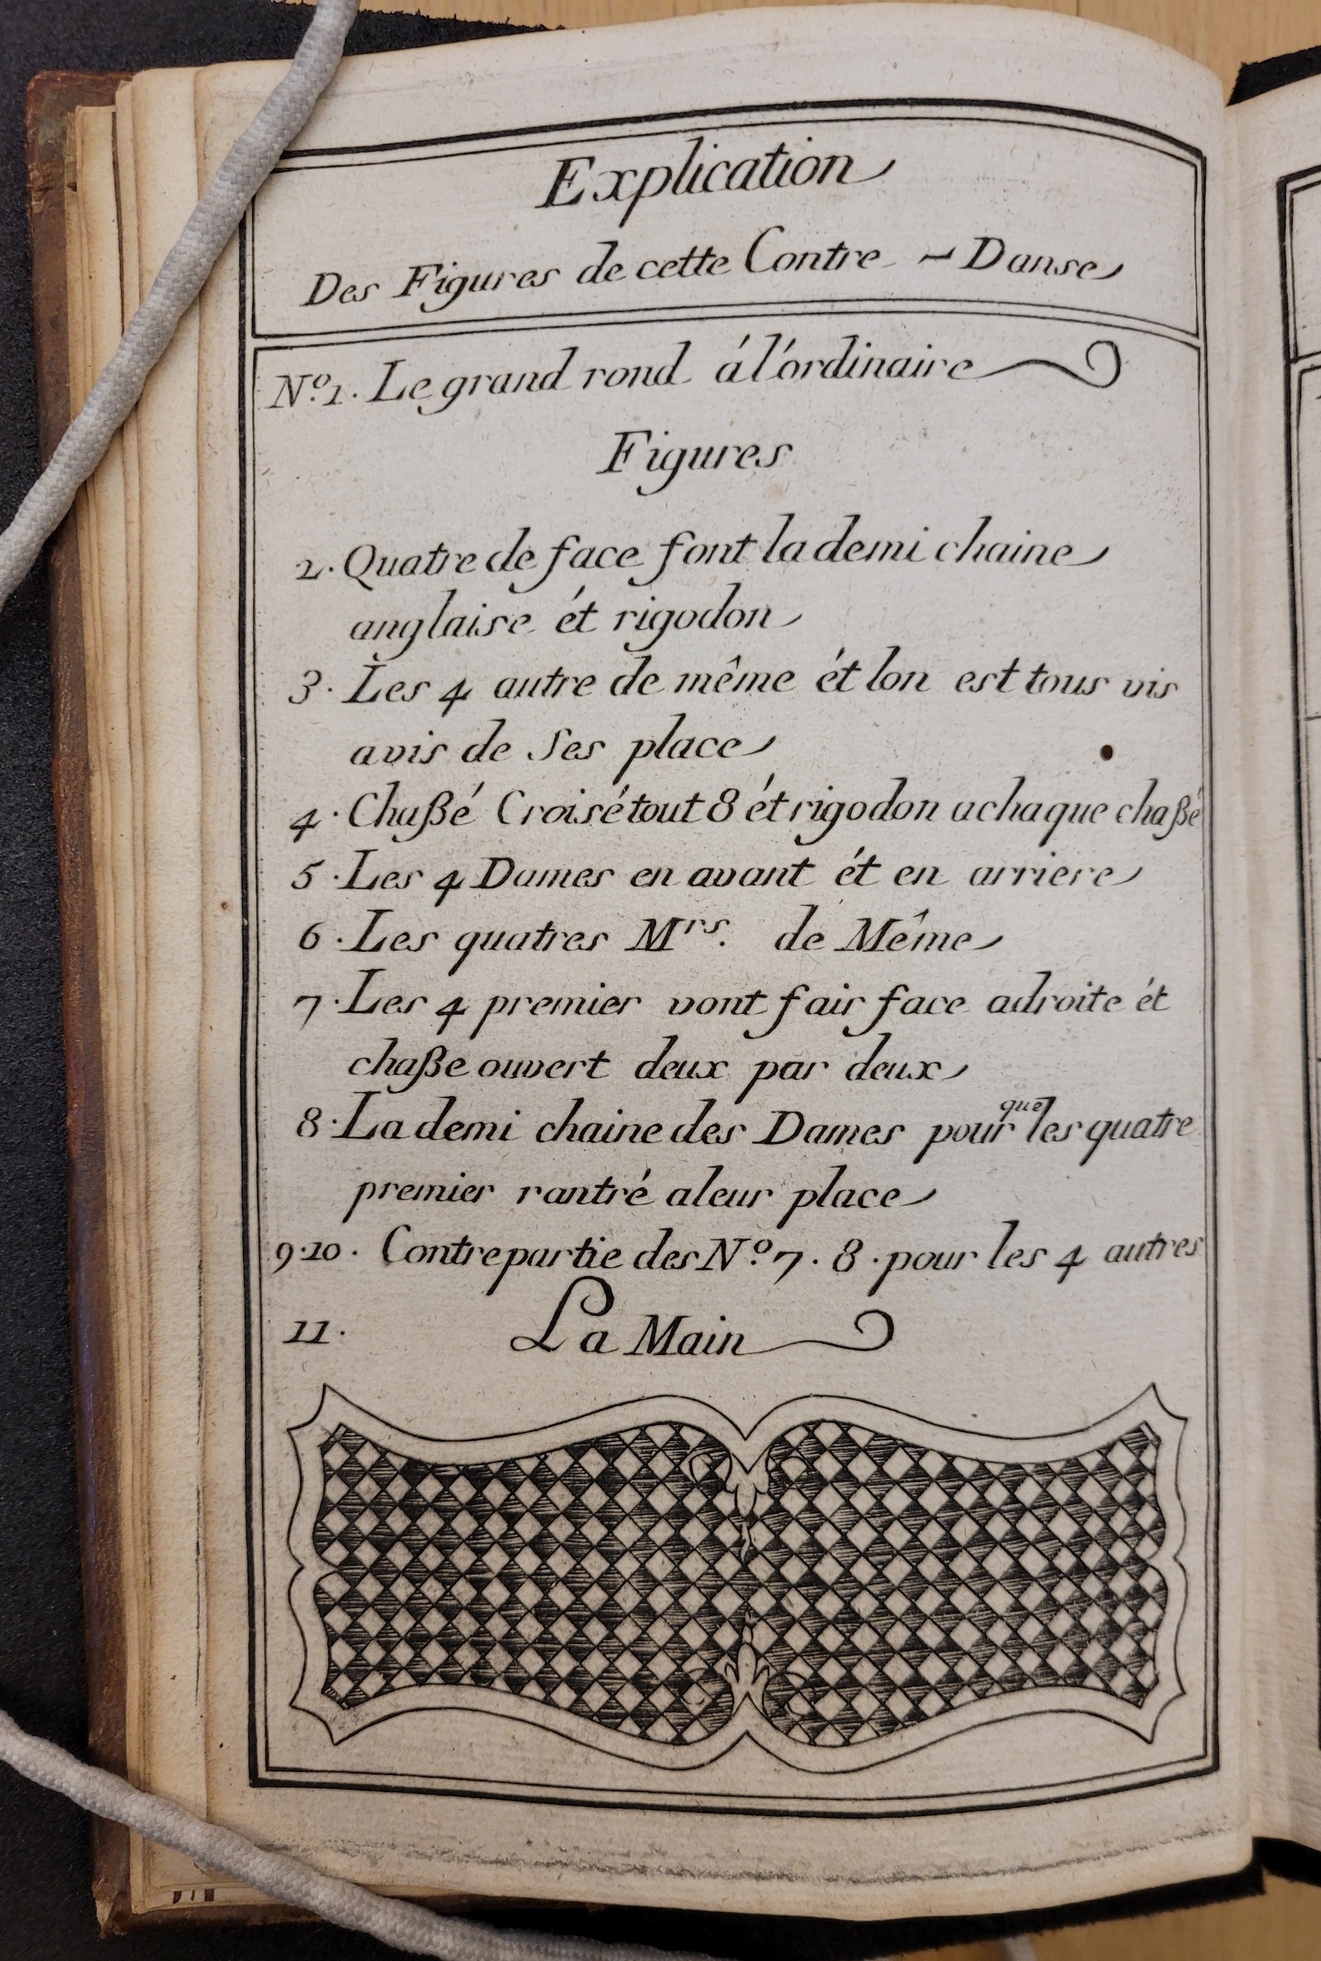 Explication
Des Figures de cette Contre - Danse
N.º 1. Le grand rond á l'órdinaire
Figures
2. Quatre de face font la demi chaine
anglaise ét rigodon
3. Les 4 autre de même ét lon est tous vis
avis de Ses place
4. Chaßé Croisé tout 8 ét rigodon a chaque chaßé
5. Les 4 Dames en avant ét en arriere
6. Les quatres Mrs. de Même
7. Les 4 premier vont fair face adroite ét
chaße ouvert deux par deux
8. La demi chaine des Dames pour que les quatre
premier rantré aleur place
9.10. Contrepartie des N.º 7. 8. pour les 4 autres
11. La Main